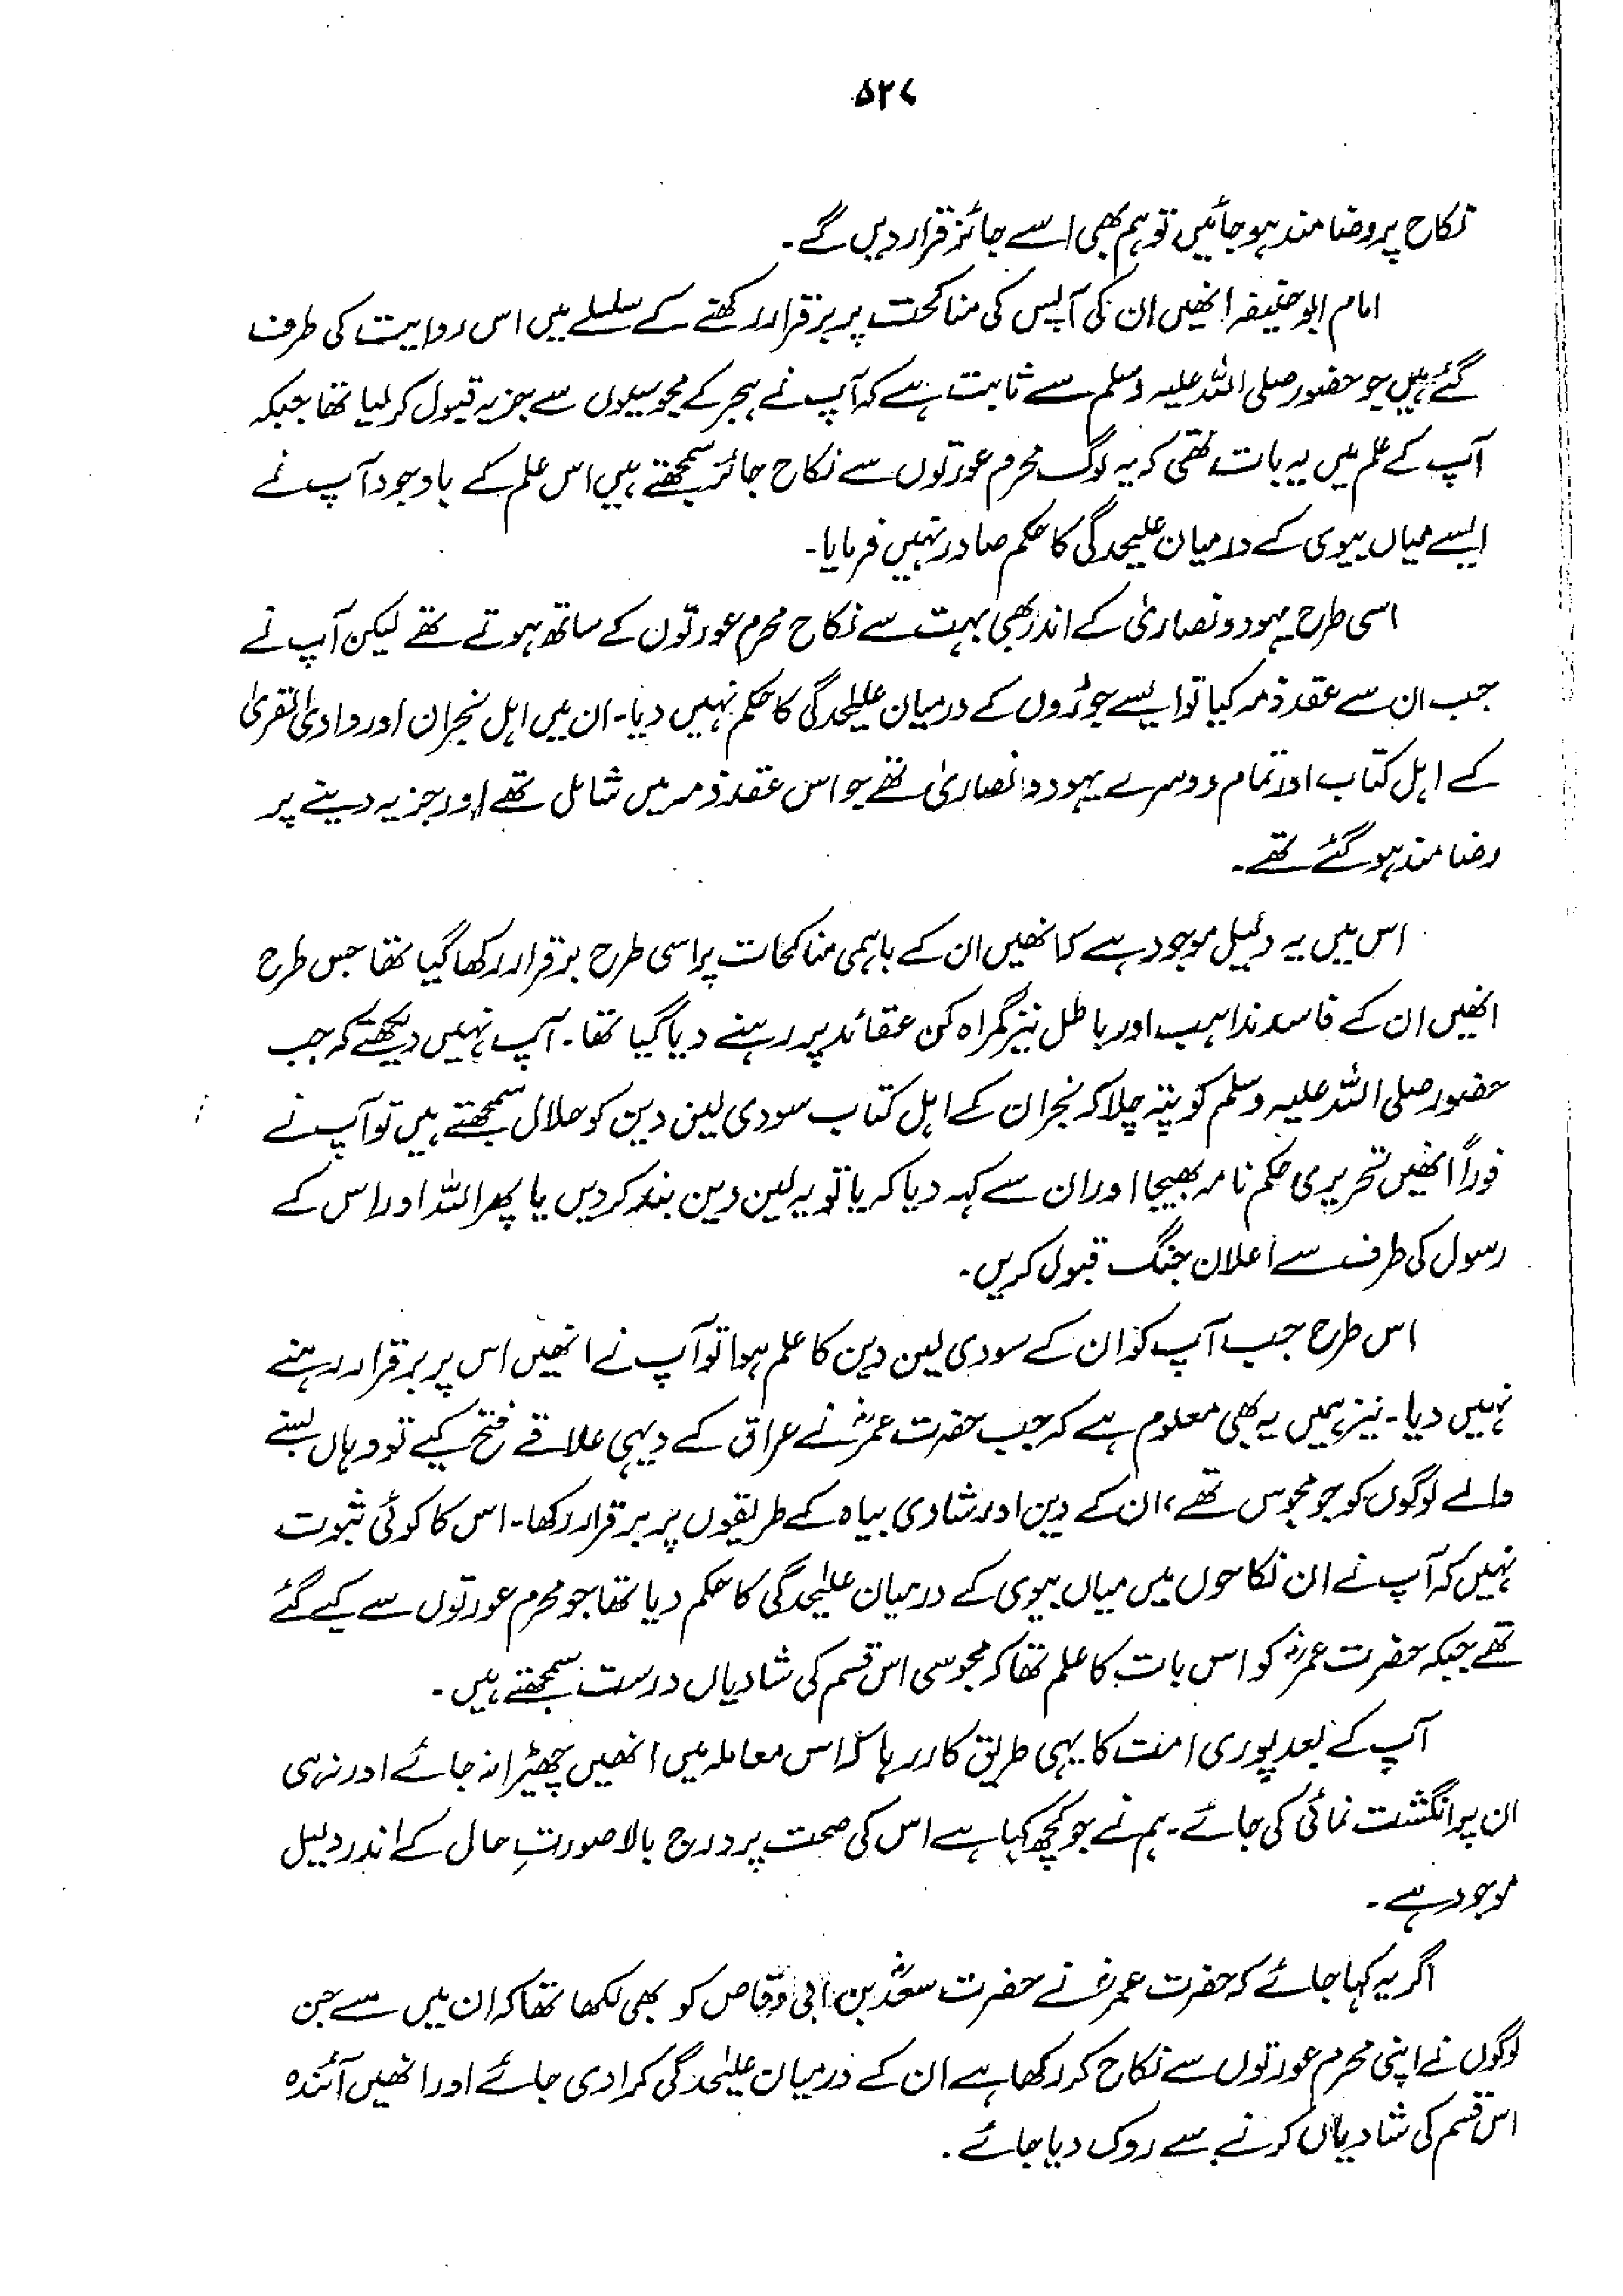 ۵۲۷
نکاح پر رضامند ہو جائیں تو ہم بھی اسے جائز قرار دیں گے۔
امام ابوحنیفہ انھیں ان کی آپس کی مناکحت پر برقرار رکھنے کے سلسلے میں اس روایت کی طرف
گئے ہیں جو حضور صلی اللہ علیہ وسلم سے ثابت ہے کہ آپ نے ہجر کے مجوسیوں سے جزیہ قبول کر لیا تھا جبکہ
آپ کے علم میں یہ بات تھی کہ یہ لوگ محرم عورتوں سے نکاح جائز سمجھتے ہیں اس علم کے باوجود آپ نے
ایسے میاں بیوی کے درمیان علیحدگی کا حکم صادر نہیں فرمایا۔
اسی طرح یہود و نصاریٰ کے اندر بھی بہت سے نکاح محرم عورتوں کے ساتھ ہوتے تھے لیکن آپ نے
جب ان سے عقد ذمہ کیا تو ایسے جوڑوں کے درمیان علیٰحدگی کا حکم نہیں دیا۔ ان میں اہل نجران اور وادی القریٰ
کے اہل کتاب اور تمام دوسرے یہود و نصاریٰ تھے جو اس عقد ذمہ میں شامل تھے اور جزیہ دینے پر
رضامند ہو گئے تھے۔
اس میں یہ دلیل موجود ہے کہ انھیں ان کے باہمی مناکحات پر اسی طرح برقرار رکھا گیا تھا جس طرح
انھیں ان کے فاسد مذاہب اور باطل نیز گمراہ کن عقائد پر رہنے دیا گیا تھا۔ آپ نہیں دیکھتے کہ جب
حضور صلی اللہ علیہ وسلم کو پتہ چلا کہ نجران کے اہل کتاب سودی لین دین کو حلال سمجھتے ہیں تو آپ نے
فوراً انھیں تحریری حکم نامہ بھیجا اور ان سے کہہ دیا کہ یا تو یہ لین دین بند کر دیں یا پھر اللہ اور اس کے
رسول کی طرف سے اعلان جنگ قبول کریں۔
اس طرح جب آپ کو ان کے سودی لین دین کا علم ہوا تو آپ نے انھیں اس پر برقرار رہنے
نہیں دیا۔ نیز ہمیں یہ بھی معلوم ہے کہ جب حضرت عمرؓ نے عراق کے دیہی علاقے فتح کیے تو وہاں بسنے
والے لوگوں کو جو مجوس تھے، ان کے دین اور شادی بیاہ کے طریقوں پر برقرار رکھا۔ اس کا کوئی ثبوت
نہیں کہ آپ نے ان نکاحوں میں میاں بیوی کے درمیان علیٰحدگی کا حکم دیا تھا جو محرم عورتوں سے کیے گئے
تھے جبکہ حضرت عمرؓ کو اس بات کا علم تھا کہ مجوسی اس قسم کی شادیاں درست سمجھتے ہیں۔
آپ کے بعد پوری امت کا یہی طریق کار رہا کہ اس معاملہ میں انھیں چھیڑا نہ جائے اور نہ ہی
ان پر انگشت نمائی کی جائے۔ ہم نے جو کچھ کہا ہے اس کی صحت پر درج بالا صورتِ حال کے اندر دلیل
موجود ہے۔
اگر یہ کہا جائے کہ حضرت عمرؓ نے حضرت سعدؓ بن ابی وقاص کو بھی لکھا تھا کہ ان میں سے جن
لوگوں نے اپنی محرم عورتوں سے نکاح کر رکھا ہے ان کے درمیان علیٰحدگی کرا دی جائے اور انھیں آئندہ
اس قسم کی شادیاں کرنے سے روک دیا جائے۔